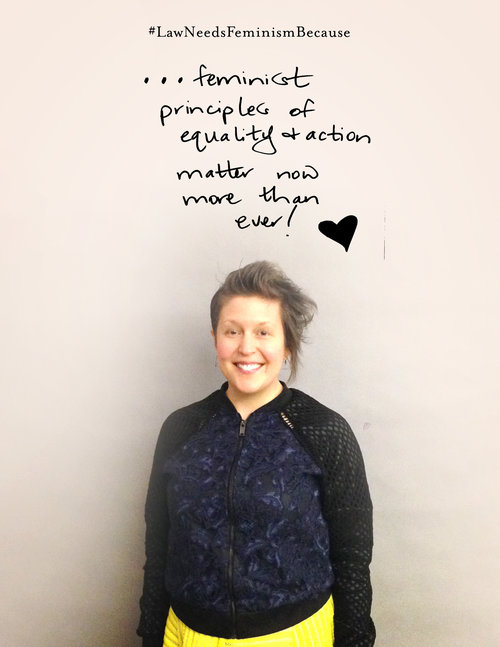 #LawNeedsFeminismBecause
...feminist
principles of
equality & action
matter now
more than
ever!